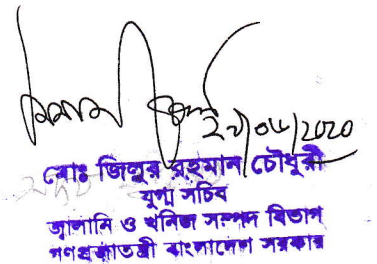 ২৯/০৬/2020
মোঃ জিল্লুর রহমান চৌধুরী
যুগ্ম সচিব
জ্বালানি ও খনিজ সম্পদ বিভাগ
গণপ্রজাতন্ত্রী বাংলাদেশ সরকার